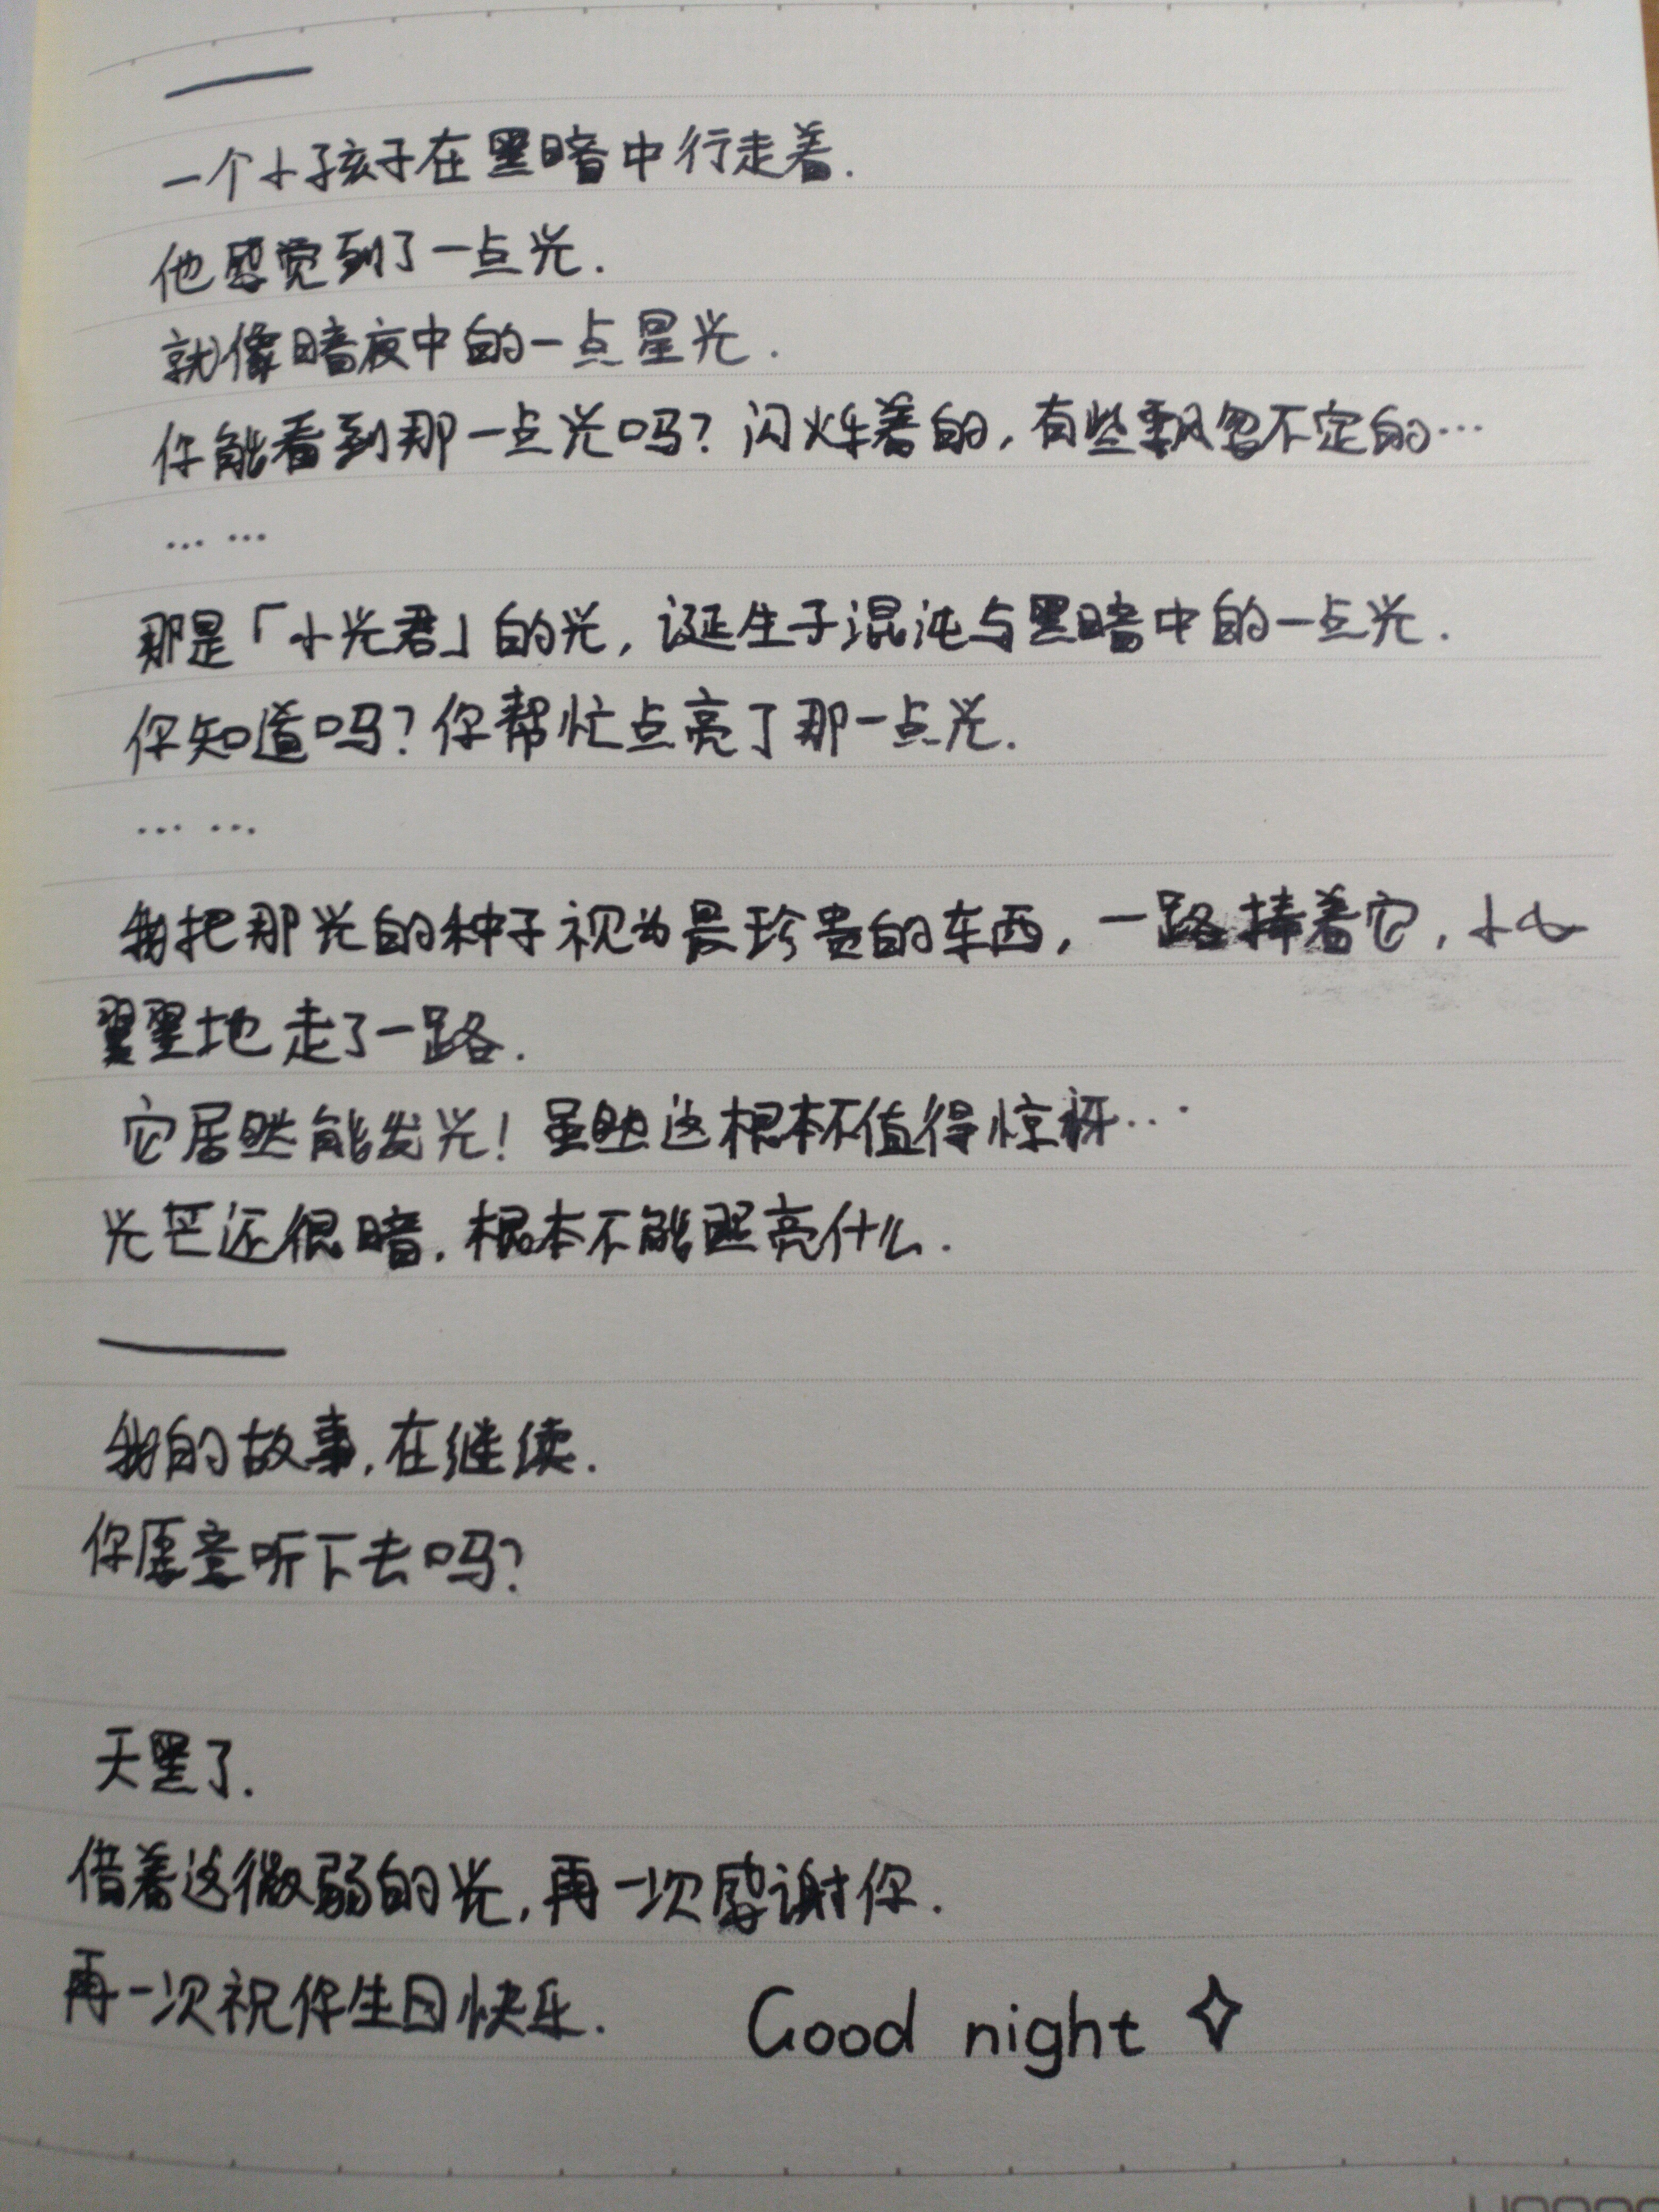 一个小孩子在黑暗中行走着.
他感觉到了一点光.
就像暗夜中的一点星光.
你能看到那一点光吗？闪烁着的，有些飘忽不定的…
… …
那是「小光君」的光，诞生于混沌与黑暗中的一点光.
你知道吗？你帮忙点亮了那一点光.
… …
我把那光的种子视为最珍贵的东西，一路捧着它，小心
翼翼地走了一路.
它居然能发光！虽然这根本不值得惊讶…
光芒还很暗，根本不能照亮什么.
我的故事，在继续.
你愿意听下去吗？
天黑了.
借着这微弱的光，再一次感谢你.
再一次祝你生日快乐. Good night